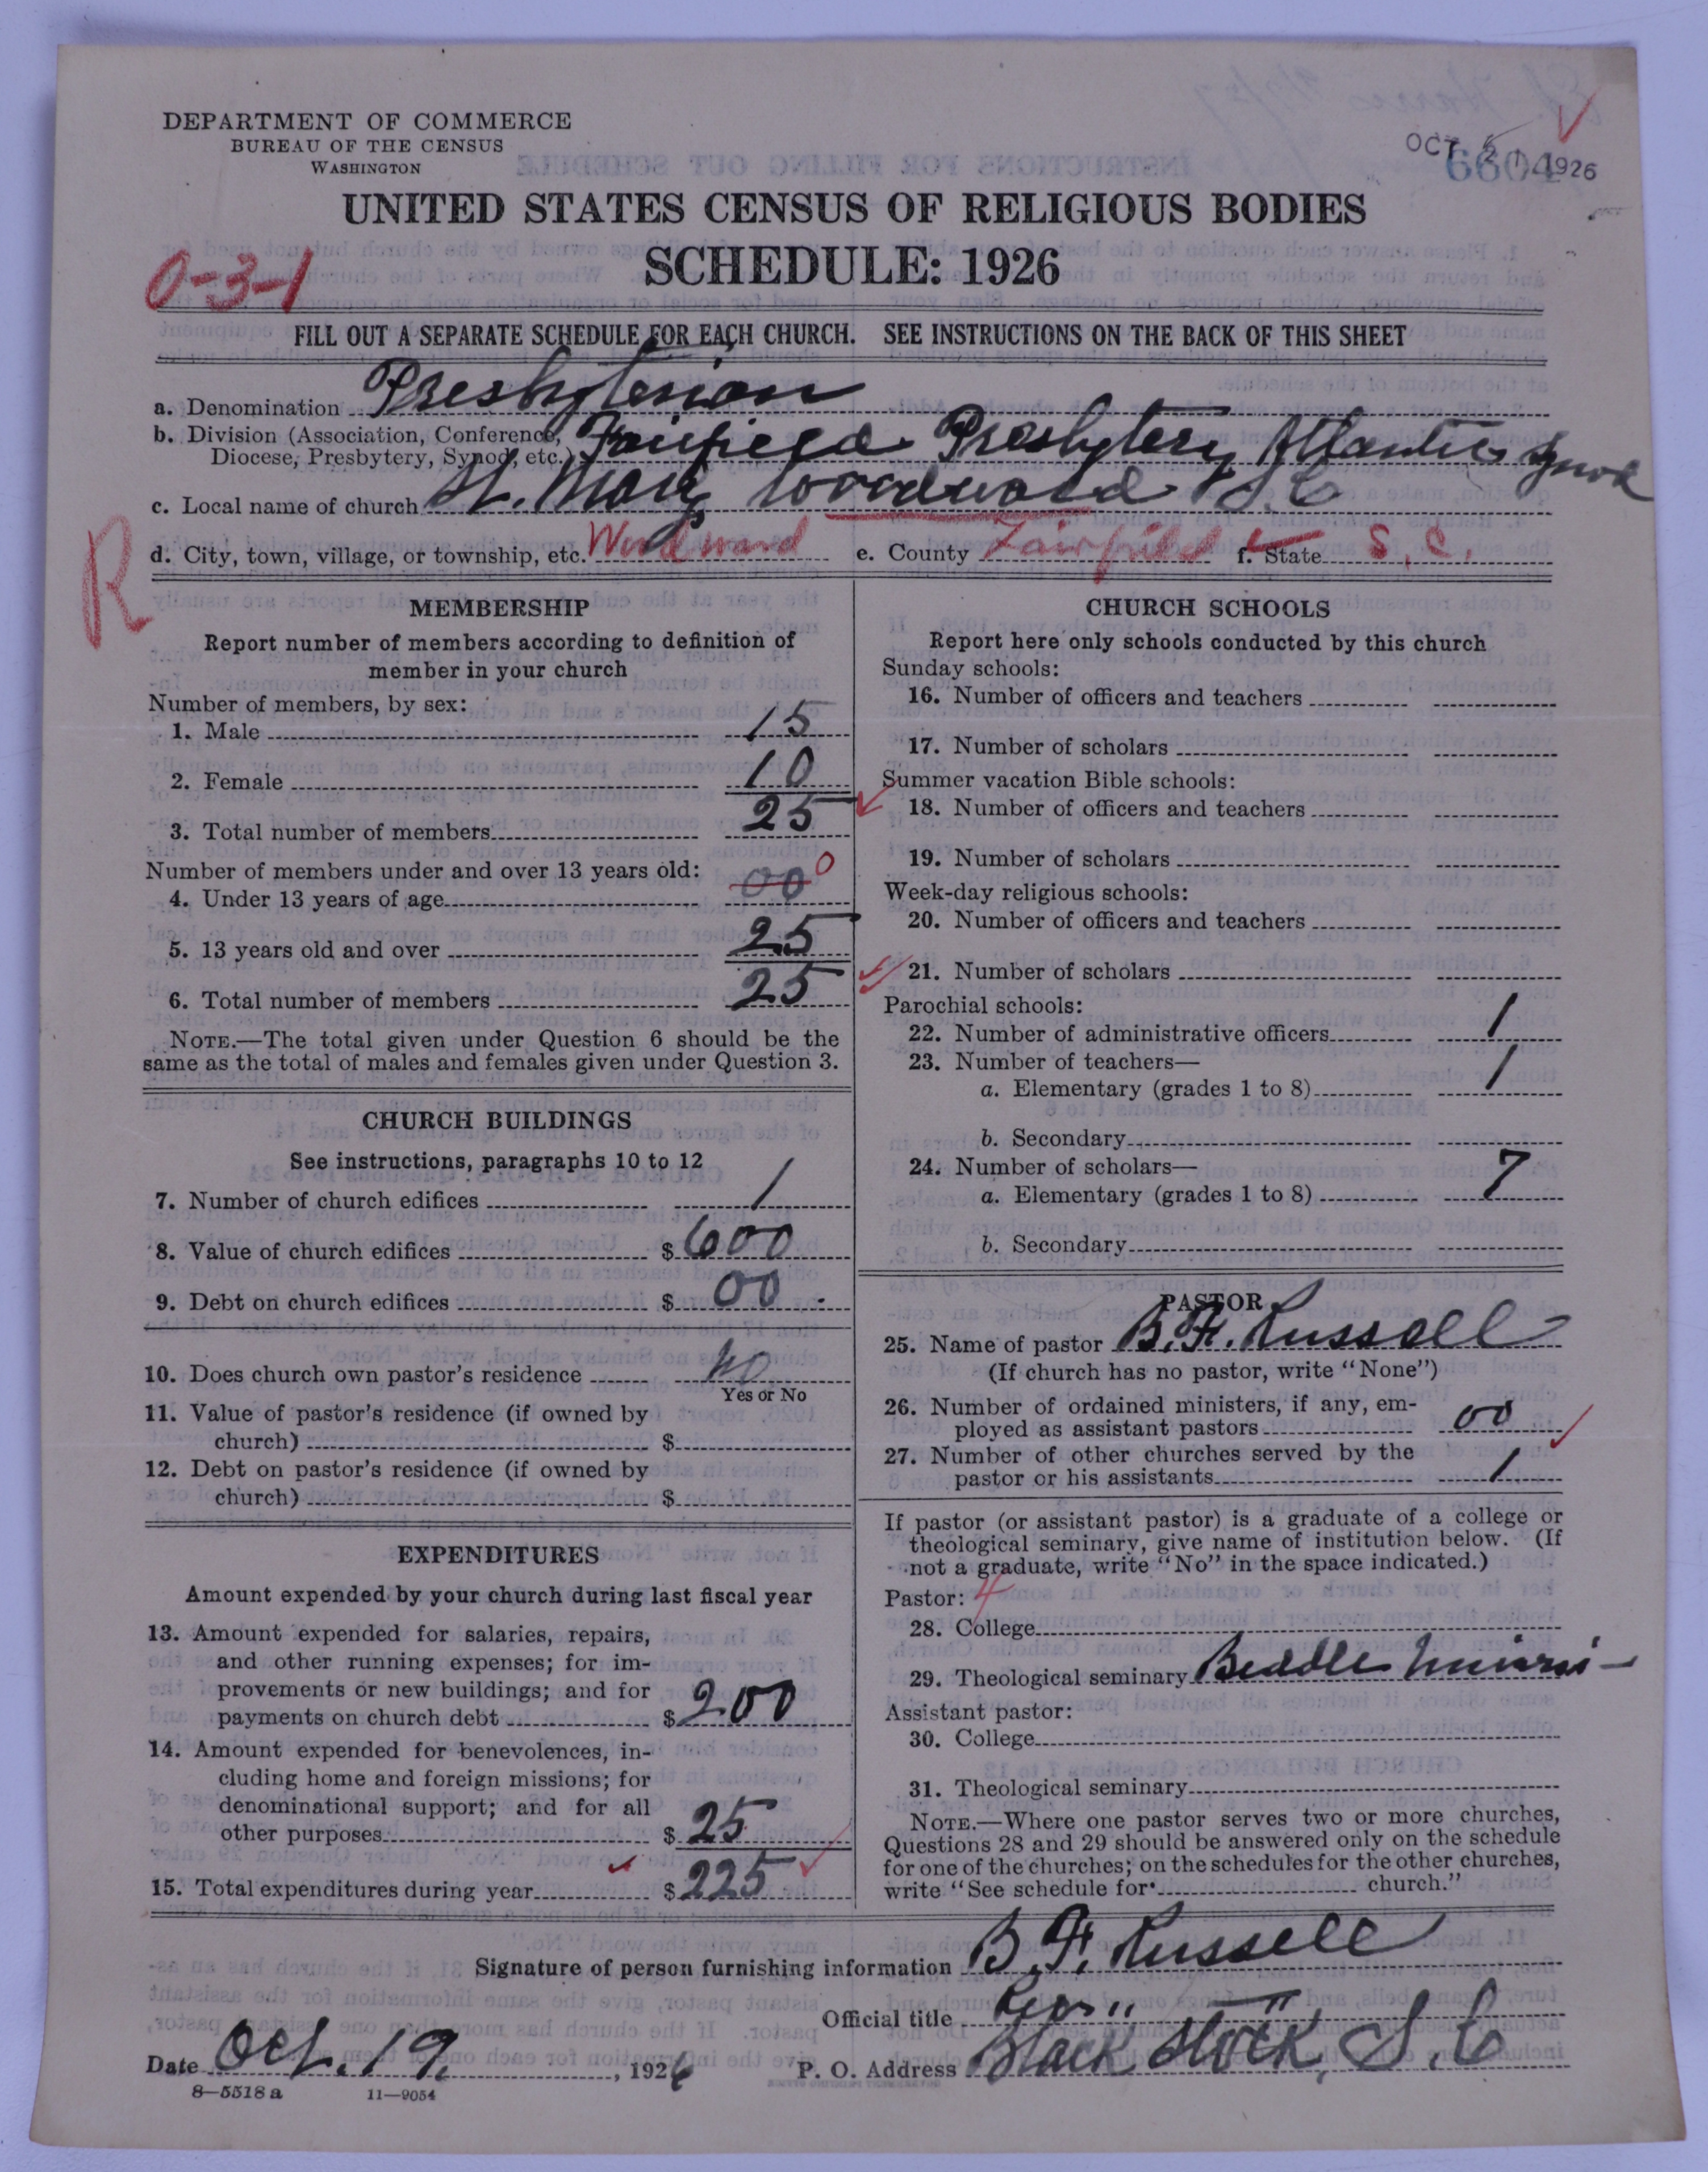 DEPARTMENT OF COMMERCE
BUREAU OF THE CENSUS
WASHINGTON
OCT 21 1926
6604
UNITED STATES CENSUS OF RELIGIOUS BODIES
SCHEDULE: 1926
0-3-1
FILL OUT A SEPARATE SCHEDULE FOR EACH CHURCH. SEE INSTRUCTIONS ON THE BACK OF THIS SHEET
a. Denomination Presbyterian
b. Division (Association, Conference, Diocese, Presbytery, Synod, etc.) Fairfield Presbytery Atlantic Synod
c. Local name of church St. Mary Woodward S.C
d. City, town, village, or township, etc. Woodward e. County Fairfield f. State S.C.
R
MEMBERSHIP
Report number of members according to definition of
member in your church
Number of members, by sex:
1. Male 15
2. Female 10
3. Total number of members 25
Number of members under and over 13 years old:
4. Under 13 years of age 00 0
5. 13 years old and over 25
6. Total number of members 25
NOTE.—The total given under Question 6 should be the
same as the total of males and females given under Question 3.
CHURCH BUILDINGS
See instructions, paragraphs 10 to 12
7. Number of church edifices 1
8. Value of church edifices $ 600
9. Debt on church edifices $ 00
10. Does church own pastor's residence no
Yes or No
11. Value of pastor's residence (if owned by
church) $
12. Debt on pastor's residence (if owned by
church) $
EXPENDITURES
Amount expended by your church during last fiscal year
13. Amount expended for salaries, repairs,
and other running expenses; for im-
provements or new buildings; and for
payments on church debt $ 200
14. Amount expended for benevolences, in-
cluding home and foreign missions; for
denominational support; and for all
other purposes $ 25
15. Total expenditures during year $ 225
CHURCH SCHOOLS
Report here only schools conducted by this church
Sunday schools:
16. Number of officers and teachers
17. Number of scholars
Summer vacation Bible schools:
18. Number of officers and teachers
19. Number of scholars
Week-day religious schools:
20. Number of officers and teachers
21. Number of scholars
Parochial schools:
22. Number of administrative officers 1
23. Number of teachers—
a. Elementary (grades 1 to 8) 1
b. Secondary
24. Number of scholars—
a. Elementary (grades 1 to 8) 7
b. Secondary
PASTOR
25. Name of pastor B.F. Russell
(If church has no pastor, write "None")
26. Number of ordained ministers, if any, em-
ployed as assistant pastors 00
27. Number of other churches served by the
pastor or his assistants 1
If pastor (or assistant pastor) is a graduate of a college or
theological seminary, give name of institution below. (If
not a graduate, write "No" in the space indicated.)
Pastor: 4
28. College
29. Theological seminary Biddle
Assistant pastor:
30. College
31. Theological seminary
NOTE.—Where one pastor serves two or more churches,
Questions 28 and 29 should be answered only on the schedule
for one of the churches; on the schedules for the other churches,
write "See schedule for church."
Signature of person furnishing information B.F. Russell
Official title
Date Oct. 19, 1926 P. O. Address Black Stock, S.C
8—5518 a 11—9054